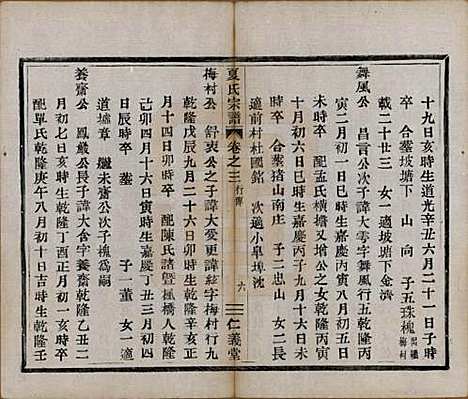 十九日亥時生道光辛丑六月二十一日子時
卒 合葬坡塘下 山 向 子五珠槐出繼梅村
載二十廿三 女一適坡塘下金濟
舞風公 昌言公次子諱大零字舞風行五乾隆丙
寅二月初一日巳時生嘉慶丙寅八月初五日
未時卒 配孟氏橫擔又增公之女乾隆戊辰
十月初六日巳時生嘉慶九月十六日未時
卒 合葬猪山南庄 子二忠山 女二長
適前村杜國銘 次適小皐埠沈
夏氏宗譜 卷之三 行傳 六 仁義堂
梅村公 舒衷公之子諱大愛更諱絃字梅村行九
乾隆戊寅九月二十六日卯時生乾隆辛亥正
月十四日卯時卒 配陳氏諸暨楓橋人乾隆
己卯四月十六日寅時生嘉慶丁丑三月初四
日辰時卒 葬 子一董 女一適
道墟章 繼未齋公次子槐
養齋公 鳳巖公長子諱大含字養齋乾隆乙丑二
月初七日亥時生乾隆丁酉正月初一日亥時卒
配單氏乾隆庚午八月初十日吉時生乾隆壬